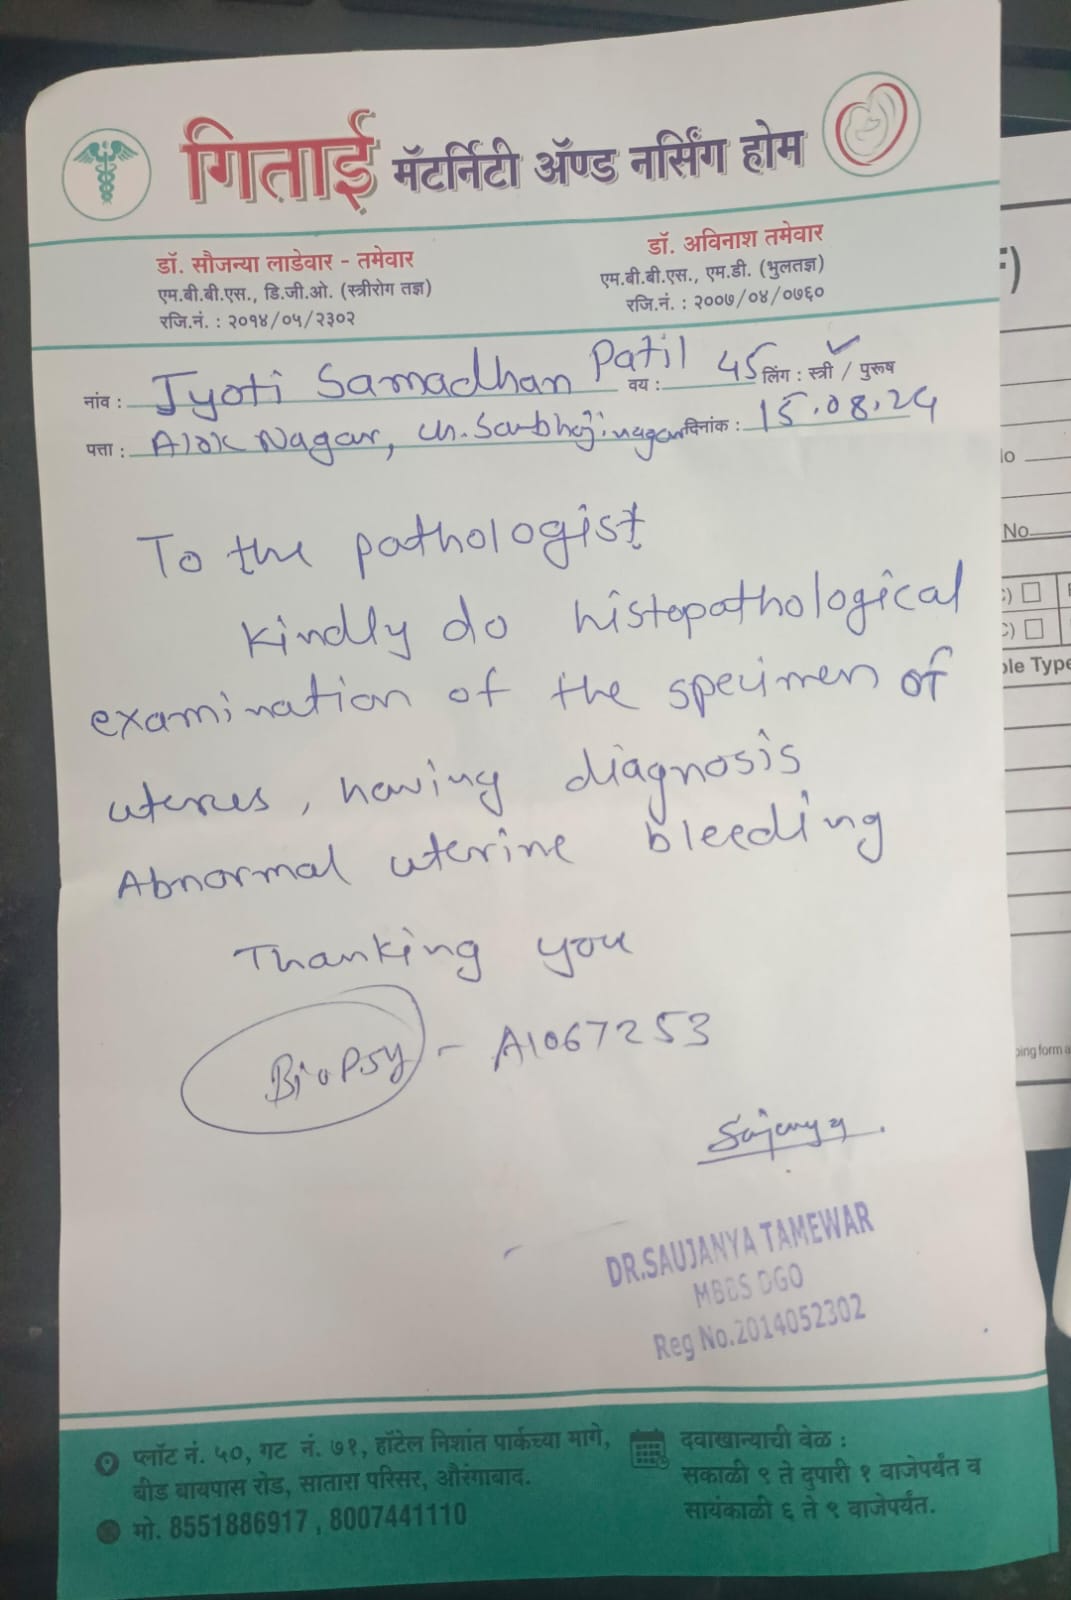 गिताई मॅटर्निटी ॲण्ड नर्सिंग होम
डॉ. सौजन्या लाडेवार - तमेवार
एम.बी.बी.एस., डि.जी.ओ. (स्त्रीरोग तज्ञ)
रजि.नं. : २०१४/०५/२३०२
डॉ. अविनाश तमेवार
एम.बी.बी.एस., एम.डी. (भुलतज्ञ)
रजि.नं. : २००७/०४/०७६०
नांव : Jyoti Samadhan Patil वय : 45 लिंग : स्त्री / पुरूष
पत्ता : Alok Nagar, Ch. Sambhajinagar दिनांक : 15.08.24
To the pathologist
Kindly do histopathological
examination of the specimen of
uterus, having diagnosis
Abnormal uterine bleeding
Thanking you
Biopsy - A1067253
DR.SAUJANYA TAMEWAR
MBBS DGO
Reg No.2014052302
प्लॉट नं. ५०, गट नं. ७१, हॉटेल निशांत पार्कच्या मागे,
बीड बायपास रोड, सातारा परिसर, औरंगाबाद.
मो. 8551886917, 8007441110
दवाखान्याची वेळ :
सकाळी ९ ते दुपारी १ वाजेपर्यंत व
सायंकाळी ६ ते ९ वाजेपर्यंत.
No
ple Type
ping form a